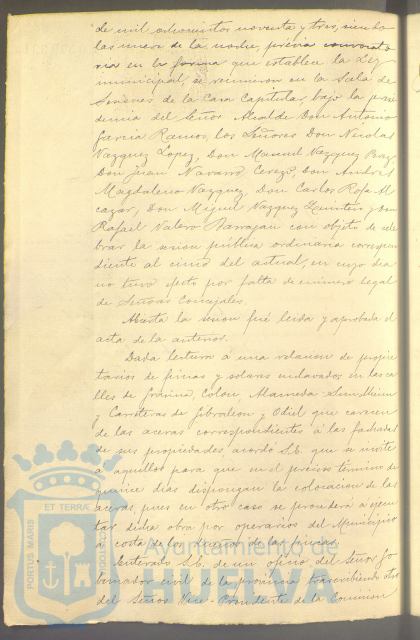 de mil ochocientos noventa y tres, siendo
las nueve de la noche, previa convocato
ria en la forma que establece la Ley
municipal, se reunieron en la Sala de
Sesiones de la Casa Capitular, bajo la presi
dencia del Señor Alcalde Don Antonio
Garcia Ramos, los Señores Don Nicolas
Vazquez Lopez, Don Manuel Vazquez Perez,
Don Juan Navarro Cerezo, Don Andres
Magdaleno Vazquez, Don Carlos Rofa Al
cazar, Don Miguel Vazquez Quintero y Don
Rafael Valero Barragan con objeto de cele
brar la sesion publica ordinaria correspon
diente al cinco del actual, en cuyo dia
no tuvo efecto por falta de numero legal
de Señores Concejales.
Abierta la sesion fué leida y aprobada el
acta de la anterior.
Dada lectura á una relacion de propie
tarios de fincas y solares enclavados en las ca
lles de Gravina, Colon, Alameda
y Carreteras de Gibraleon y Odiel que carecen
de las aceras correspondientes á las fachadas
de sus propiedades, acordó S.E. que se invite
á aquellos para que en el preciso término de
quince dias dispongan la colocacion de las
aceras, pues en otro caso se procederá á ejecu
tar dicha obra por operarios del Municipio
á costa de los dueños de las fincas.
Enterado S.E. de un oficio del Señor Go
bernador civil de la provincia trascribiendo otro
del Señor Vice-Presidente de la Comision
PORTUS MARIS
ET TERRÆ
CUSTODIA
Ayuntamiento de
HUELVA